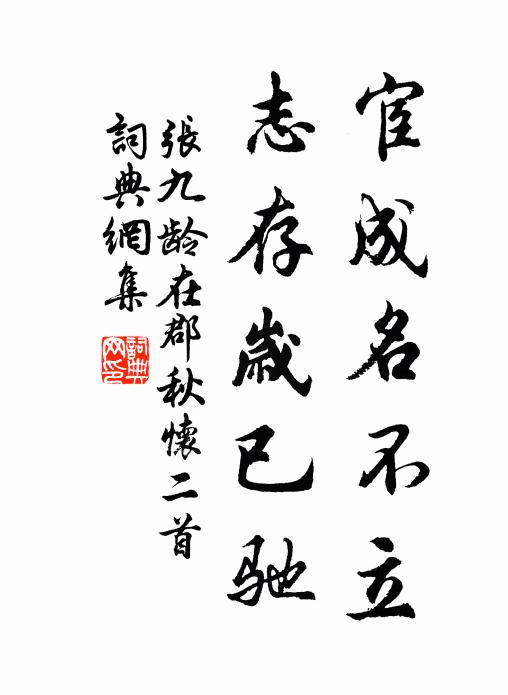 宦成名不立
志存歲已馳
張九龄在郡秋懷二首
詞典網集
詞典網印